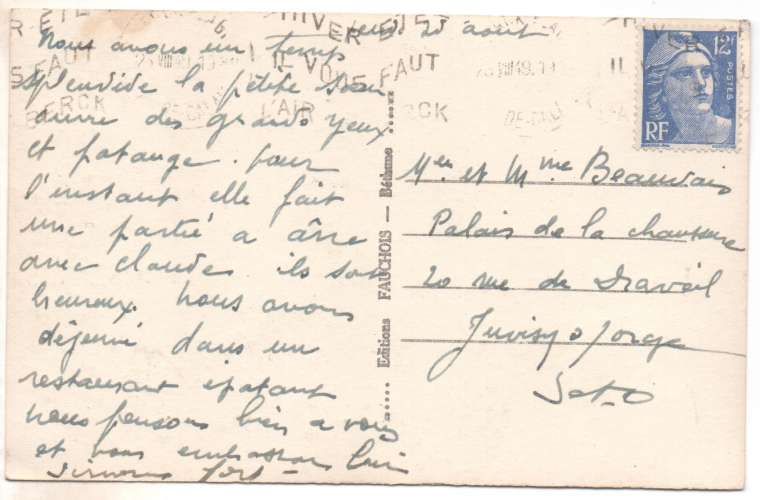 HIVER ÉTÉ
IL VOUS FAUT
L'AIR
BERCK
12F
POSTES
RF
jeudi 25 août
Nous avons un temps
splendide la petite
ouvre des grands yeux
et patauge. pour
l'instant elle fait
une partie a âne
avec claude. ils sont
heureux. nous avons
déjeuné dans un
restaurant épatant
nous pensons bien a vous
et vous embrassons bien
Editions FAUCHOIS — Béthune
Mr et Mme Beauvais
Palais de la chaussure
20 rue de Draveil
Juvisy s orge
S et O